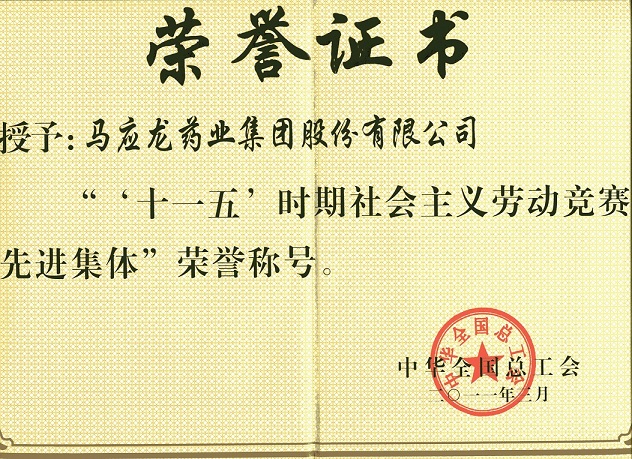 荣誉证书
授予：马应龙药业集团股份有限公司
“‘十一五’时期社会主义劳动竞赛
先进集体”荣誉称号。
中华全国总工会
中华全国总工会
二〇一一年三月